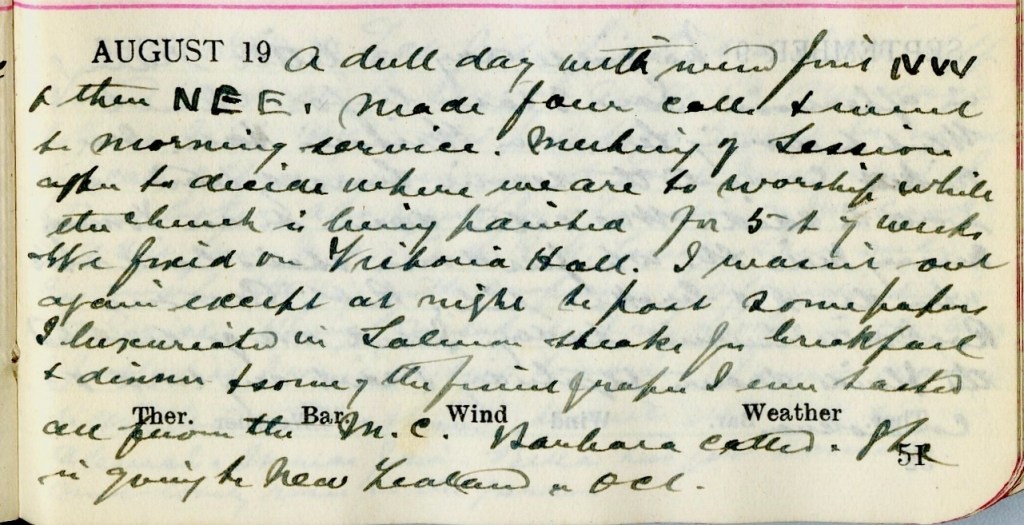 AUGUST 19 A dull day with wind first NW
& then NEE. Made four calls & went
to morning service. Meeting of Session
after to decide where we are to worship while
the church is being painted for 5 to 7 weeks
We fixed on Victoria Hall. I wasn't out
again except at night to post some papers
I luxuriated in Salmon steaks for breakfast
& dinner & some of the finest grapes I ever tasted
Ther. Bar. Wind Weather
all from the M.C. Barbara called. She
51
is going to New Zealand in Oct.